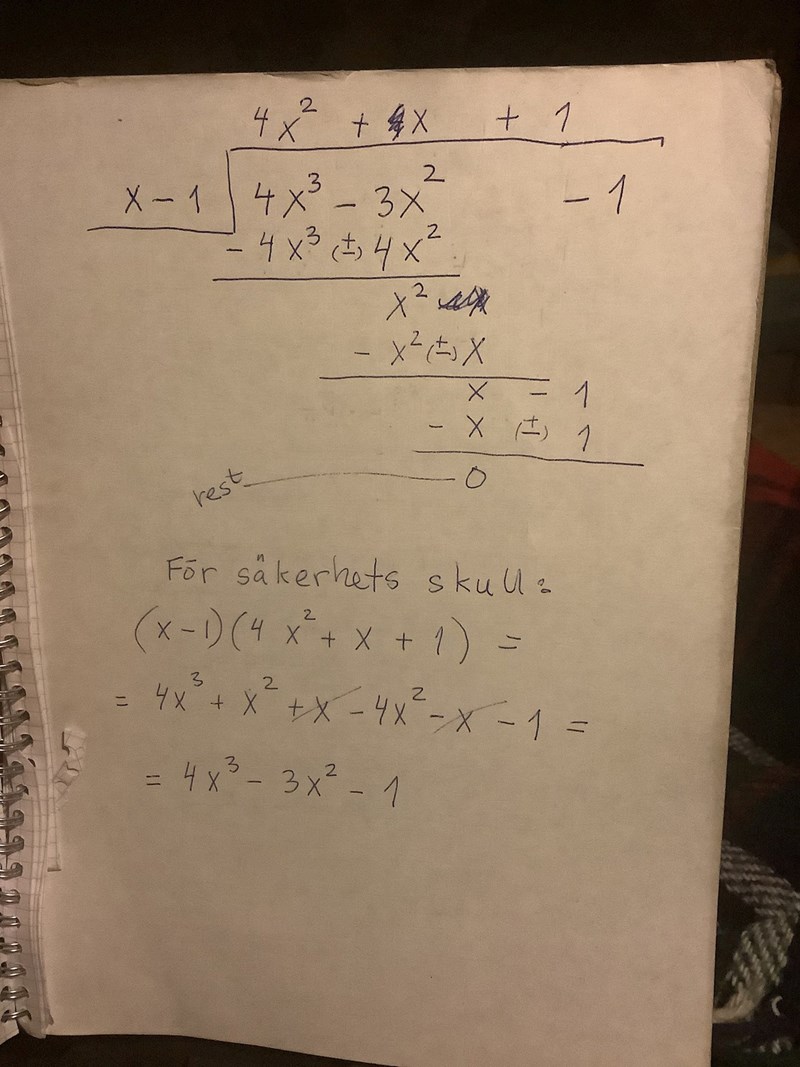 4x² + x + 1
x - 1 4x³ - 3x² - 1
- 4x³ (±) 4x²
x²
- x² (±) x
x - 1
- x (±) 1
rest 0
För säkerhets skull:
(x-1)(4x² + x + 1) =
= 4x³ + x² + x - 4x² - x - 1 =
= 4x³ - 3x² - 1